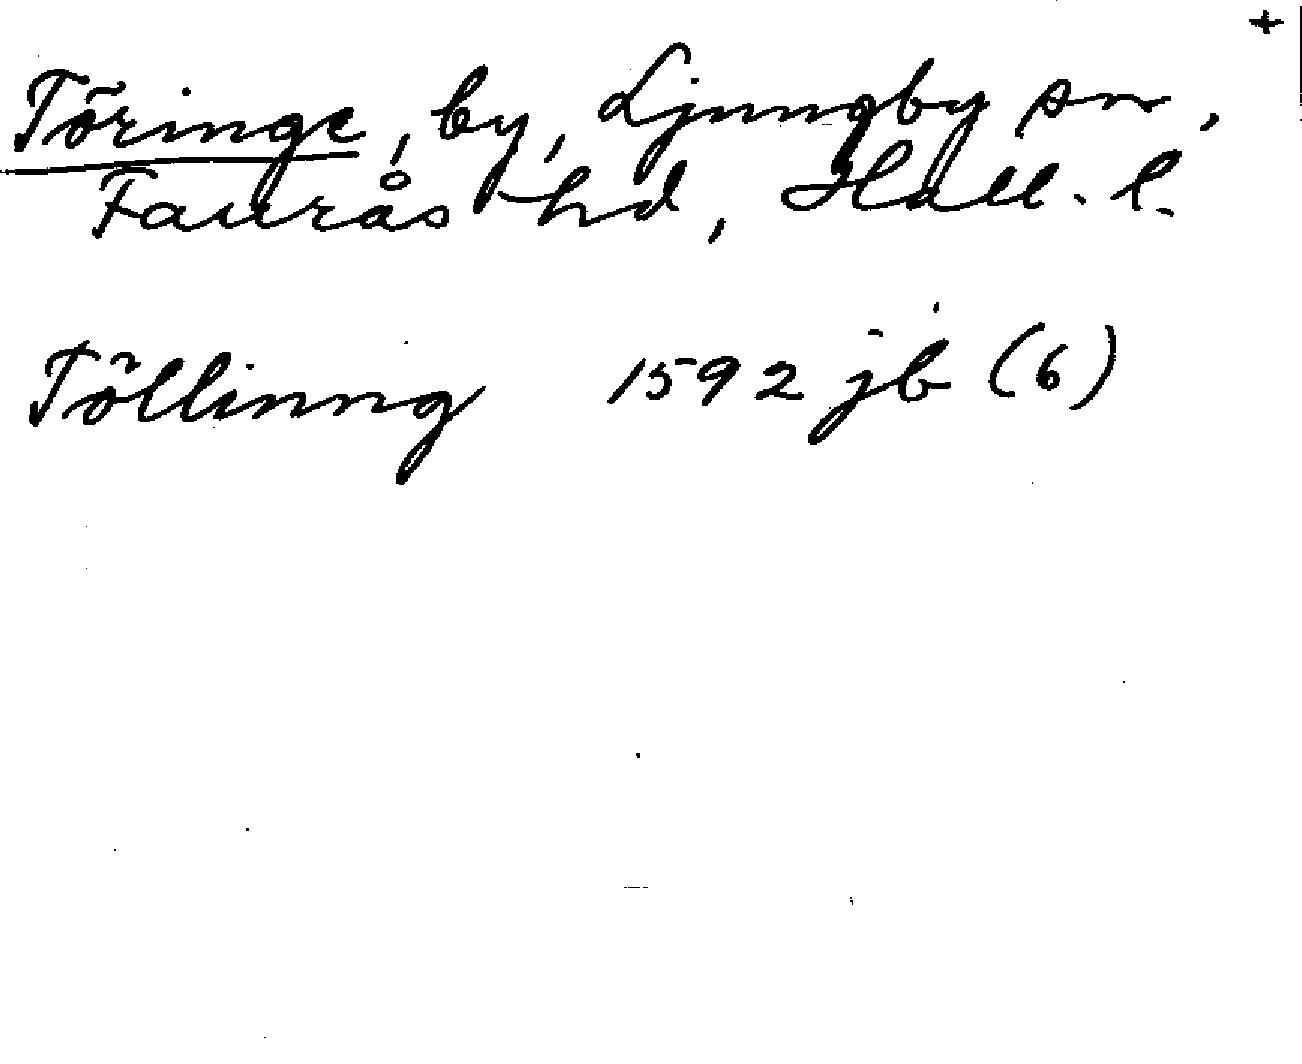 +
Töringe, by, Ljungby sn,
Faurås hd, Hall. l.
Töllinng 1592 jb (6)